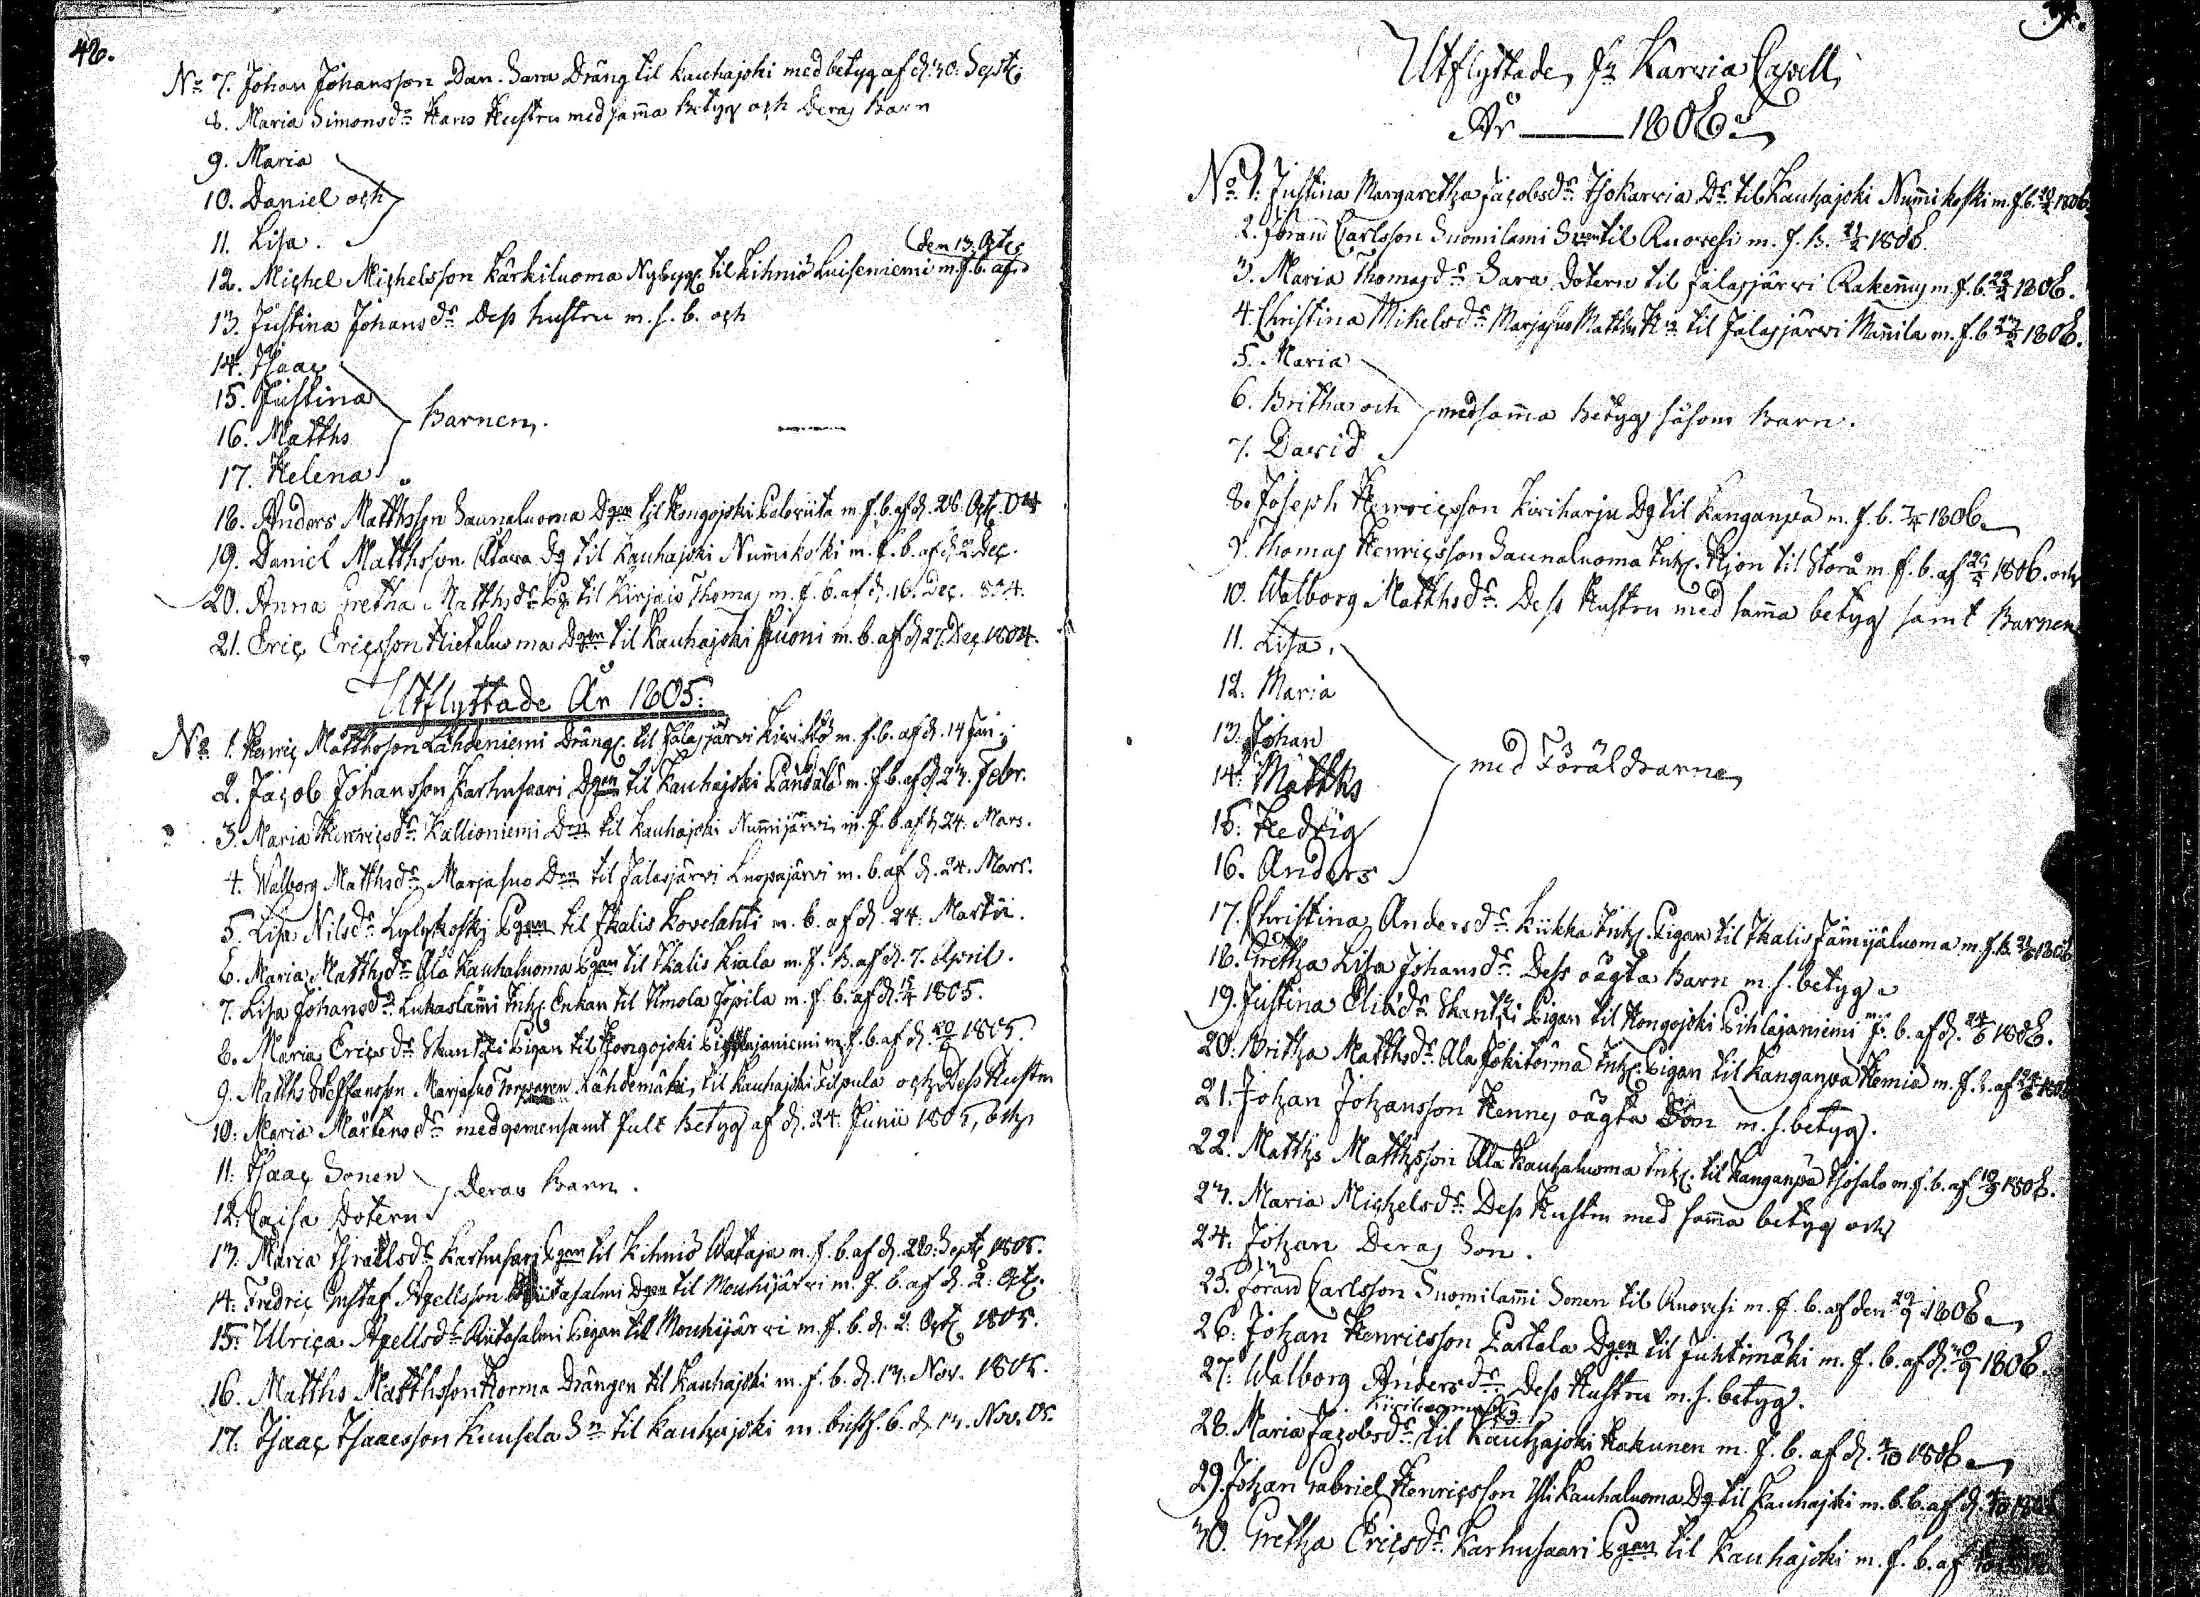 48.
No 7. Johan Johansson Dan. Sara Dräng til Kauhajoki med betyg af d. 30. Sept:
8. Maria Simonsdr Hans Hustru med samma Betyg och Deras Barn
9. Maria
10. Daniel och
11. Lisa.
den 13. Octr
12. Michel Michelsson Kärkiluoma Nybyg. til Kihniö Luiseniemi m. f. b. af
13. Justina Johansdr Dess hustru m. s. b. och
14. Isaac
15. Justina
16. Matths
17. Helena
Barnen.
18. Anders Matthsson Saunaluoma Dgen til Hongojoki m f. b. af d. 28. Oct. 04
19. Daniel Matthsson Dg til Kauhajoki Numikoski m. f. b. af d. 2 Dec.
20. Anna Gretha Matthsdr Pg. til Thomas m. f. b. af d. 16. Dec. 804.
21. Eric Ericsson Hietaluoma Dgen til Kauhajoki m. b. af d. 27. Dec. 1804.
Utflyttade År 1805.
No 1. Henric Matthsson Lähdeniemi Dräng. til Jalasjärvi m. f. b. af d. 14 Jan.
2. Jacob Johansson Karhusaari Dgen til Kauhajoki m. f. b. af d. 23. Febr.
3. Maria Henricsdr Kallioniemi Drn til Kauhajoki Numijärvi m. f. b. af d. 24. Mars.
4. Walborg Matthsdr Marjasuo Drn til Jalasjärvi Luopajärvi m. b. af d. 24. Mars.
5. Lisa Nilsdr Lylykoski Pgan til Ikalis Kovelahti m. b. af d. 24. Martii.
6. Maria Matthsdr Ala Kauhaluoma Pgan til Ikalis Kiala m. f. b. af d. 7. April.
7. Lisa Johansdr Lukaslämi Inh. Enkan til Ilmola Jopila m. f. b. af d. 1805.
8. Maria Ericsdr Skantzi Pigan til Hongojoki Pihlajaniemi m. f. b. af d. 1805.
9. Matths Steffansson Marjasuo Torparen Lähdemäki, til Kauhajoki Filpula och Dess Hustru
10. Maria Mårtensdr med gemensamt fult Betyg af d. 24. Junii 1805, och
11. Isaac Sonen
12. Caisa Dotern
Deras Barn.
13. Maria Israelsdr Karhusari Pgan til Kihniö Aataja m. f. b. af d. 28. Sept. 1805.
14. Fredric Gustaf Axellsson Dgen til Mouhijärvi m. f. b. af d. 2. Oct.
15. Ulrica Axellsdr Ritasalmi Pigan til Mouhijärvi m. f. b. d. 2. Oct. 1805.
16. Matths Matthsson Horma Drängen til Kauhajoki m. f. b. d. 13. Nov. 1805.
17. Isaac Isaacsson Kuusela Sn til Kauhajoki m. b. d. 13. Nov. 05.
Utflyttade, fr Karvia Capell,
År 1806.
No 1. Justina Margaretha Jacobsdr Isokarvia Dr til Kauhajoki Numikoski m. f. b. 1806.
2. Göran Carlsson Suomilami Sven til Ruovesi m. f. b. 1806.
3. Maria Thomasdr Sara Dotern til Jalasjärvi Rakenus m. f. b. 1806.
4. Christina Mikelsdr Marjasuo Matths Hu til Jalasjärvi Mannila m. f. b. 1806.
5. Maria
6. Britha och
7. David
med samma Betyg såsom Barn.
8. Joseph Henricsson Kiviharju Dg til Kanganpä m. f. b. 1806.
9. Thomas Henricsson Saunaluoma Inh. Hjon til Storå m. f. b. af 1806. och
10. Walborg Matthsdr. Dess Hustru med samma betyg samt Barnen
11. Lisa.
12. Maria
13. Johan
14. Matths
15. Hedvig
16. Anders
med Föräldrarne
17. Christina Andersdr Kukka Inh. Pigan til Ikalis Jämijäluoma m. f. b. 1806
18. Gretha Lisa Johansdr Dess oägta Barn m. s. betyg
19. Justina Eliædr Skantzi Pigan til Hongojoki Pihlajaniemi m. f. b. af d. 1806.
20. Britha Matthsdr Ala Jokitörma Inh. Pigan til Kanganpä Homia m. f. b. af
21. Johan Johansson Hennes oägta Son m. s. betyg.
22. Matths Matthsson Ala Kauhaluoma Inh. til Kanganpä Isosalo m. f. b. af 1806.
23. Maria Michelsdr Dess Hustru med samma betyg och
24. Johan Deras Son.
25. Göran Carlsson Suomilami Sonen til Ruovesi m. f. b. af den 1806
26. Johan Henricsson Lattela Dgen til Juhtimäki m. f. b. af d. 1806.
27. Walborg Andersdr Dess Hustru m. s. betyg.
28. Maria Jacobsdr til Kauhajoki Hakunen m. f. b. af d. 1806
29. Johan Gabriel Henricsson Yli Kauhaluoma Dg til Kauhajoki m. b. af d.
30. Gretha Ericsdr Karhusaari Pgan til Kauhajoki m. f. b. af